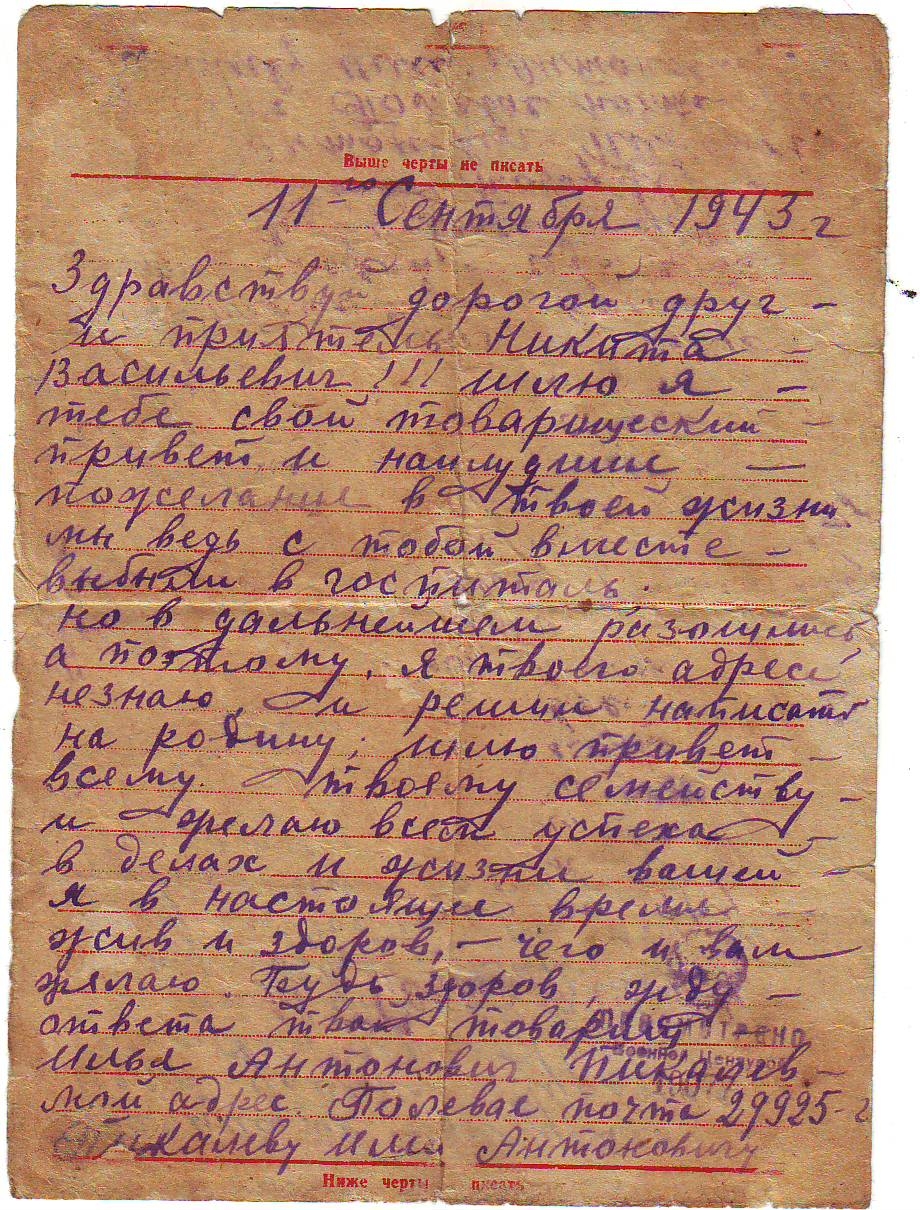 Выше черты не писать
11-го Сентября 1943 г
Здравствуй дорогой друг -
и приятель Никита -
Васильевич!!! шлю я -
тебе свой товарищеский -
привет и наилучшие -
пожелание в твоей жизни
мы ведь с тобой вместе -
выбыли в госпиталь.
но в дальнейшем разлучились
а поэтому, я твоего адреса
незнаю, и решил написать
на родину, шлю привет -
всему твоему семейству -
и желаю всем успеха -
в делах и жизни вашей -
я в настоящее время -
жив и здоров, - чего и вам
желаю. Будь здоров, жду -
ответа твой товарищ
ПРОСМОТРЕНО
Военной Цензурой
Илья Антонович Пикалев -
мой адрес. Полевае почта 29925-г
Пикалеву Илии Антоновичу
Ниже черты писать